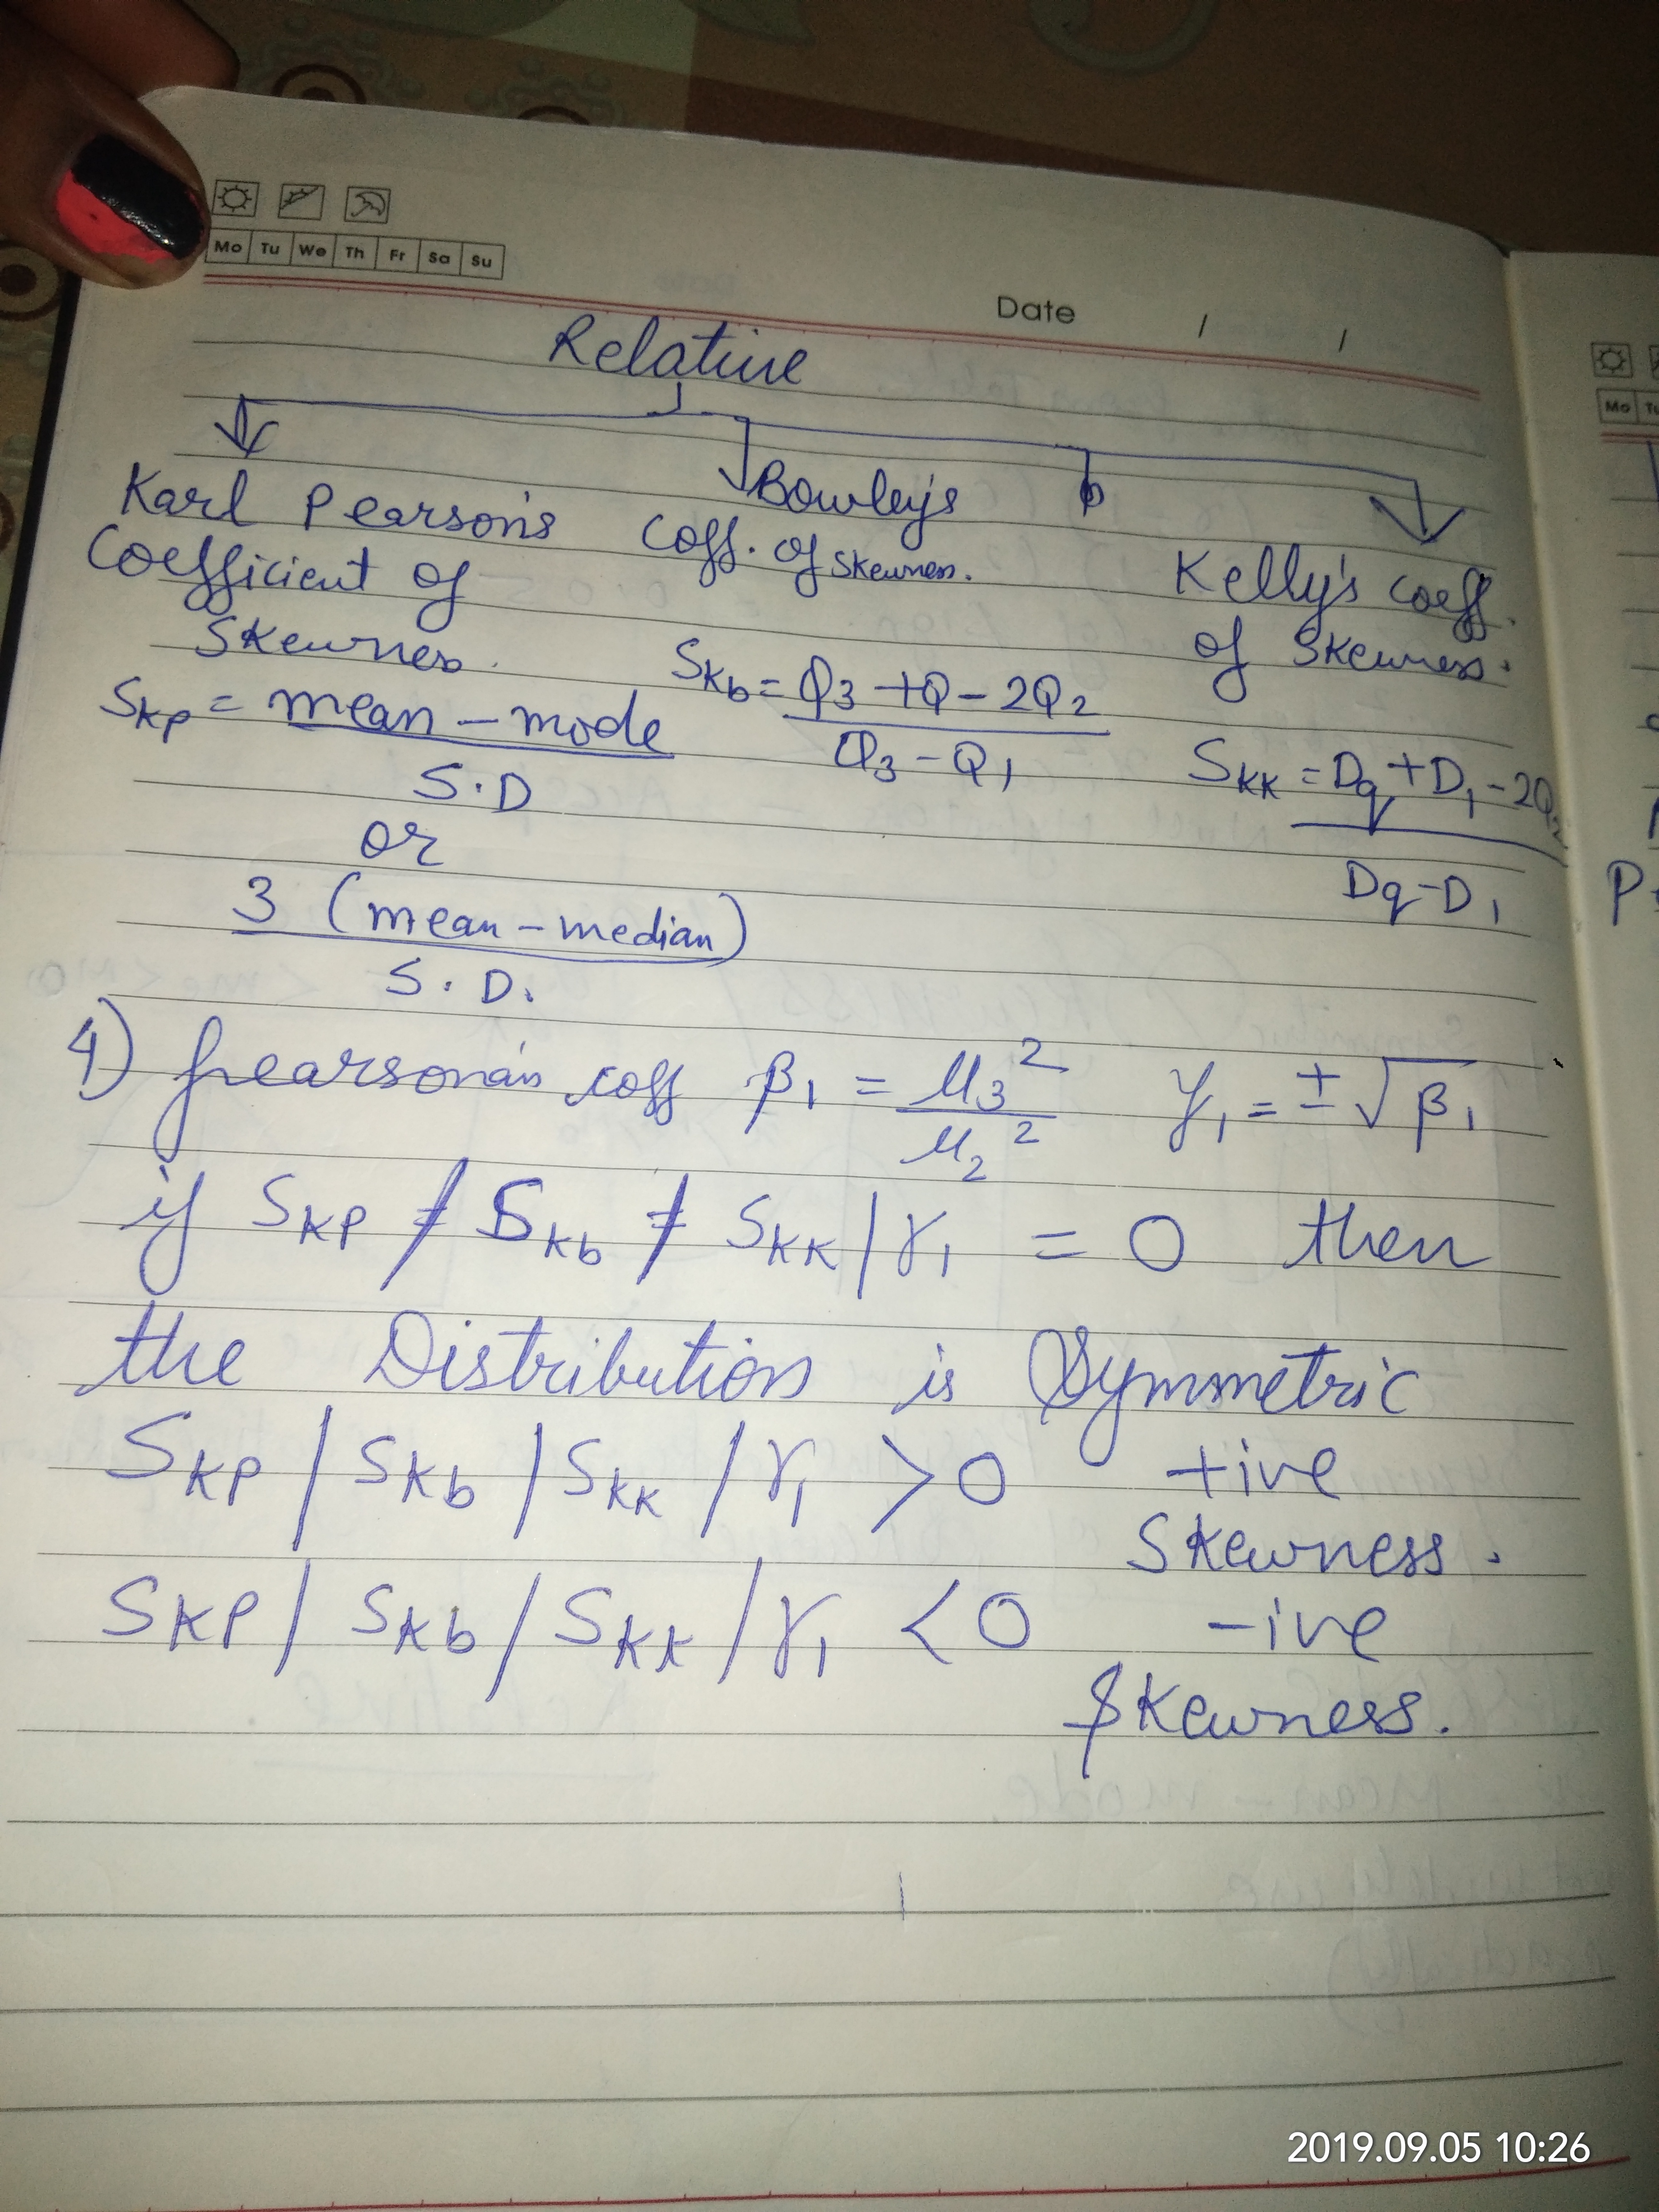 Mo Tu We Th Fr Sa Su
Date / /
Relative
Karl Pearson's
Coefficient of
Skewness.
S_KP = mean - mode
S.D
or
3 (mean - median)
S. D.
Bowley's
Coff. of Skewness.
S_Kb = Q3 + Q - 2Q2
Q3 - Q1
Kelly's coeff.
of Skewness.
S_KK = D9 + D1 - 2Q2
D9 - D1
4) pearsonian coff β1 = μ3² / μ2² γ1 = ± √β1
if S_KP ≠ S_Kb ≠ S_KK / γ1 = 0 then
the Distribution is Symmetric
S_KP / S_Kb / S_KK / γ1 > 0 +ive
Skewness.
S_KP / S_Kb / S_KK / γ1 < 0 -ive
Skewness.
Mo
P
2019.09.05 10:26